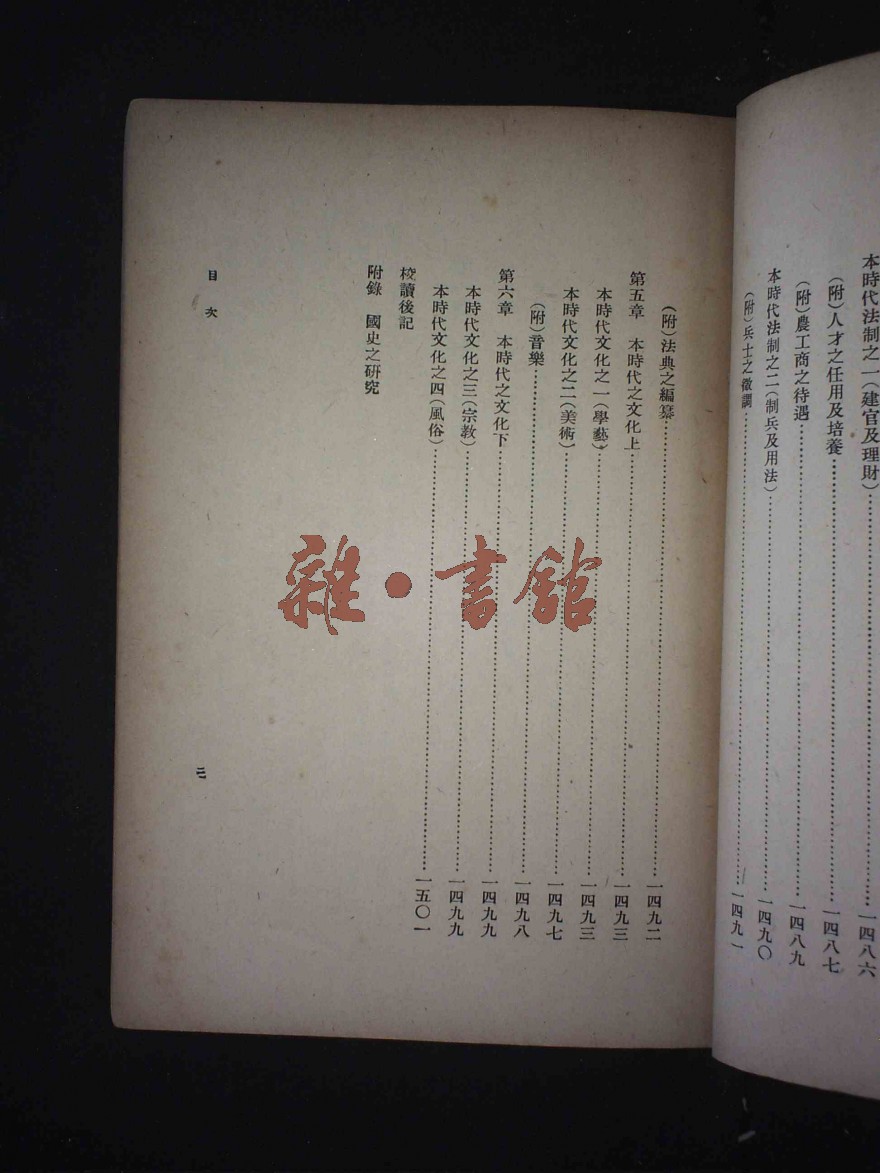 本時代法制之一(建官及理財)……一四八六
(附)人才之任用及培養……一四八七
(附)農工商之待遇……一四八九
本時代法制之二(制兵及用法)……一四九〇
(附)兵士之徵調……一四九一
(附)法典之編纂……一四九二
第五章 本時代之文化上……一四九三
本時代文化之一(學藝)……一四九三
本時代文化之二(美術)……一四九七
(附)音樂……一四九八
第六章 本時代之文化下……一四九九
本時代文化之三(宗教)……一四九九
本時代文化之四(風俗)……一五〇一
校讀後記
附錄 國史之研究
目次
二一
雜·書館